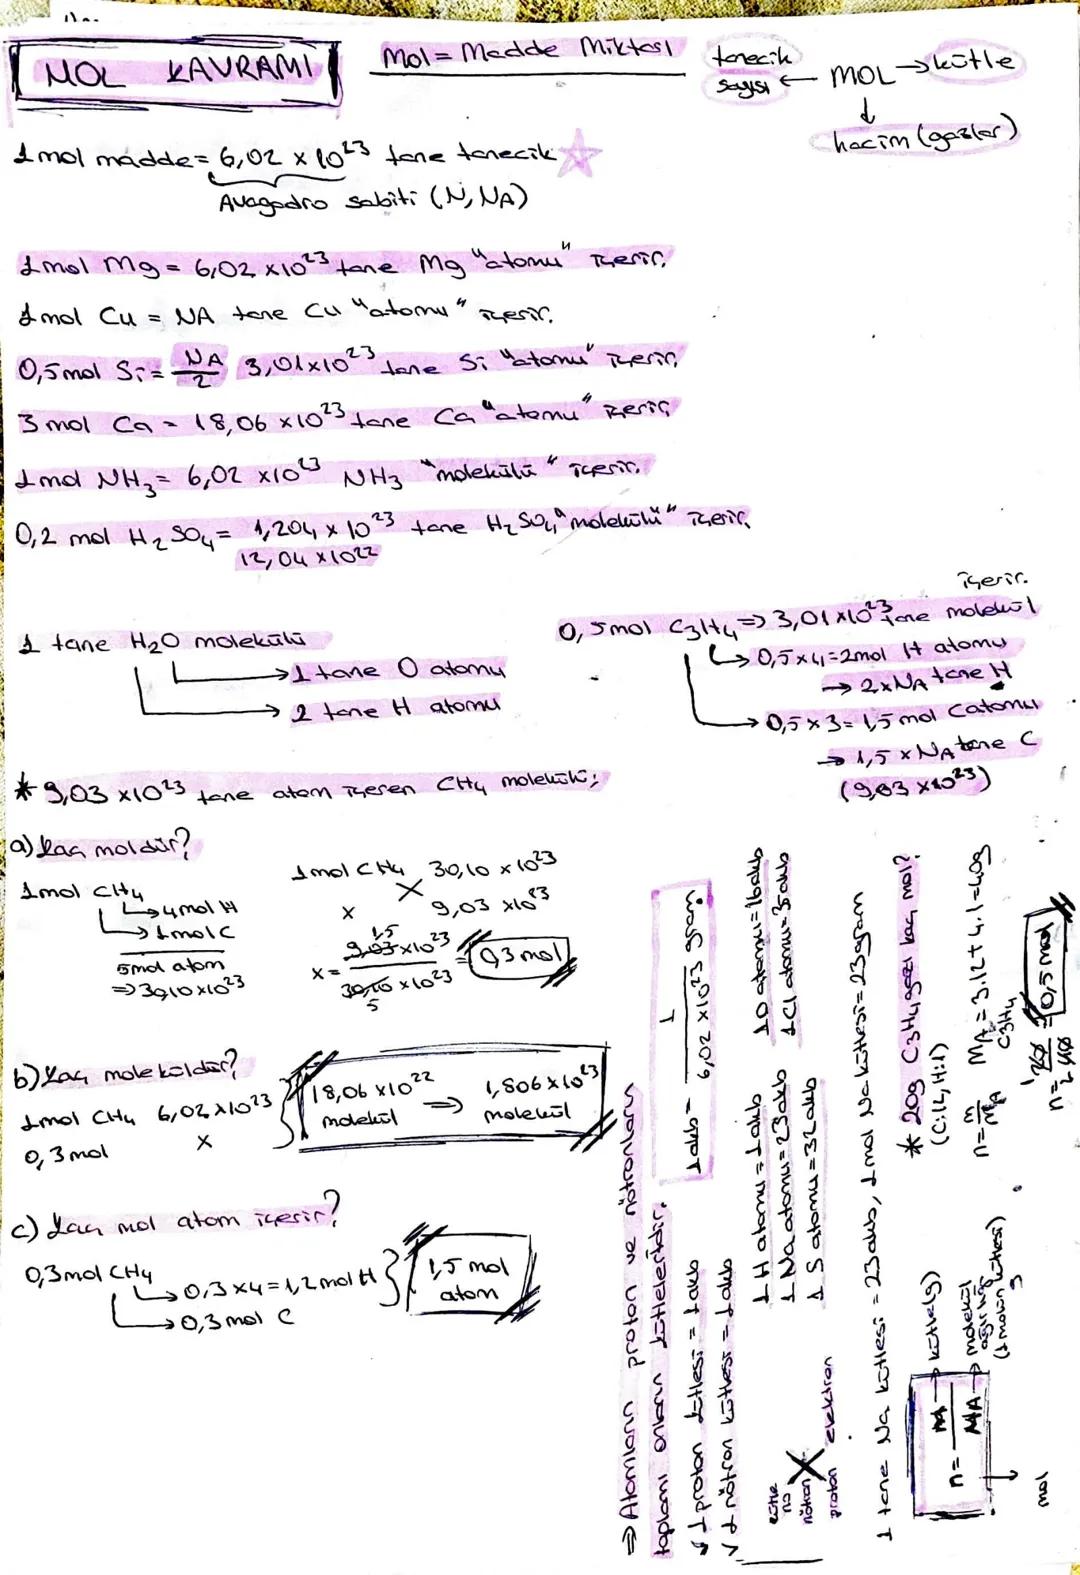 MOL KAVRAMI
Mol = Madde Miktarı
tanecik sayısı ← MOL → kütle
↓
hacim (gazlar)
1 mol madde = 6,02 x 10²³ tane tanecik
Avagadro sabiti (N, NA)
1 mol Mg = 6,02 x10²³ tane Mg "atomu" içerir.
1 mol Cu = NA tane Cu "atomu" içerir.
0,5 mol Si = NA/2 3,01x10²³ tane Si "atomu" içerir.
3 mol Ca = 18,06 x10²³ tane Ca "atomu" içerir
1 mol NH₃ = 6,02 x10²³ NH₃ "molekülü" içerir.
0,2 mol H₂SO₄ = 1,204 x 10²³ tane H₂SO₄ "molekülü" içerir.
12,04 x10²²
1 tane H₂O molekülü
→ 1 tane O atomu
→ 2 tane H atomu
içerir.
0,5 mol C₃H₄ ⇒ 3,01 x10²³ tane molekül
→ 0,5x4=2mol H atomu
→ 2xNA tane H
→ 0,5x3= 1,5 mol C atomu
→ 1,5 x NA tane C
(9,03 x10²³)
* 9,03 x10²³ tane atom içeren CH₄ molekülü;
a) Kaç moldür?
1 mol CH₄
→ 4 mol H
→ 1 mol C
5 mol atom
⇒ 30,10 x10²³
1 mol CH₄ 30,10 x 10²³
x 9,03 x10²³
1,5
x = 9,03 x10²³ / 30,10 x10²³ = 0,3 mol
5
b) Kaç moleküldür?
1 mol CH₄ 6,02 x10²³
0,3 mol x
18,06 x10²² molekül ⇒ 1,806 x10²³ molekül
c) Kaç mol atom içerir?
0,3 mol CH₄
→ 0,3 x4 = 1,2 mol H
→ 0,3 mol C
1,5 mol atom
⇒ Atomların proton ve nötronlarının
toplamı onların kütleleridir.
1 akb = 1 / 6,02 x10²³ gram
√ 1 proton kütlesi = 1 akb
√ 1 nötron kütlesi = 1 akb
1 H atomu = 1 akb 1 O atomu = 16 akb
1 Na atomu = 23 akb 1 Cl atomu = 35 akb
1 S atomu = 32 akb
kütle no
nötron X elektron
proton
1 tane Na kütlesi = 23 akb, 1 mol Na kütlesi = 23 gram
n = m / MA
m → kütle(g)
MA → molekül ağırlığı
(1 molün kütlesi)
g
mol
* 20g C₃H₄ gazı kaç mol?
(C:12, H:1)
n = m/MA MA = 3.12 + 4.1 = 40g
C₃H₄
n = 20/40 = 0,5 mol